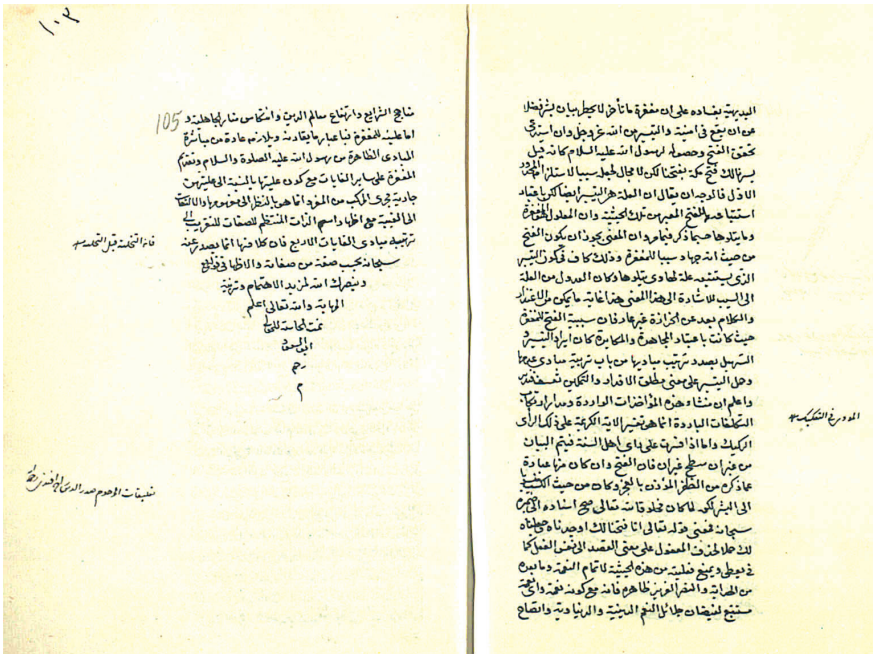 البديهية بفساده على ان مغفرة ما تأخر لا يحيط ببيان بشر فضلا
عن ان يقع في امنية والتيسر من الله عز وجل وان استدعى
تحقق الفتح وحصوله لرسول الله عليه السلام كانه قيل
يسرنا لك فتح مكة بفتحنا لكن لا مجال لجعله سببا لاستلزامه المحذور
الاول فالوجه ان يقال ان العلة هو التيسر ايضا لكن باعتبار
استتباعه الفتح المعبر من تلك الحيثية وان المعلول المغفرة
وما يتلوها حسبما ذكر فيما مر وان المعنى يجوز ان يكون الفتح
من حيث انه جهاد سببا للمغفرة وذلك كاف في كون التيسر
الذي يستتبعه علة لها وما يتلوها وكان العدول من العلة
الى السبب للاشارة الى هذا المعنى هذا غاية ما يمكن من الاعتذار
والكلام بعد عن الحزازة غير عار فان سببية الفتح للمغفرة
حيث كانت باعتبار المجاهدة والمكابرة كان ايراد التيسر و
التسهيل بصدد ترتيب مباديها من باب تربية مبادى غيرها
وحمل التيسر على معنى مطلق الاقدار والتمكين تعسف
واعلم ان منشاء هذه المؤاخذات الواردة ومدار ارتكاب
التكلفات الباردة انما هي تفسير الاية الكريمة على ذلك الرأى
الركيك واما اذا فسرت على رأى اهل السنة فيتم البيان
من غير ان فان الفتح وان كان منها عبارة
عما ذكره من الظفر المؤذن بالعجز وكان من حيث الكسب
الى البشر لكنه لما كان مخلوقا لله تعالى صح اسناده الى ضميره
سبحانه فمعنى قوله تعالى انا فتحنا لك اوجدناه وجعلناه
لك خلا لحذف المفعول على معنى القصد الى نفس الفعل كما
في يعطى ويمنع فعليته من هذه الحيثية لاتمام النعمة وما بعده
من الهداية والنصر العزيز ظاهرة فانه مع كونه نعمة واى نعمة
مستتبع لفيضان جلائل النعم الدينية والدنياوية واتضاح
المورد في التفكيك
١٠٣
105
مناهج الشرايع وارتفاع معالم الدين وانتكاس منار الجاهلية و
اما عليته للمغفرة فباعتبار ما يقارنه ويلازمه عادة من مباشرة
المبادى الظاهرة من رسول الله عليه الصلوة والسلام وتقديم
المغفرة على ساير الغايات مع كون عليتها بالنسبة الى عليتهن
جارية مجرى المركب من المفرد انما هو بالنظر الى مفهومها والالتفات
الى الغيبة مع اظهار اسم الذات المنتظم للصفات للتقريب الى
ترتيب مبادى الغايات الاربع فان كلا منها انما يصدر عنه
سبحانه بحسب صفة من صفاته والاظهار في قوله تعالى
وينصرك الله لمزيد الاهتمام وتربية
المهابة والله تعالى اعلم
تمت الحاشية للمولى
ابو السعود
رحم
م
فان التخلية قبل التحلية
تعليقات المرحوم صدر الدين افندى